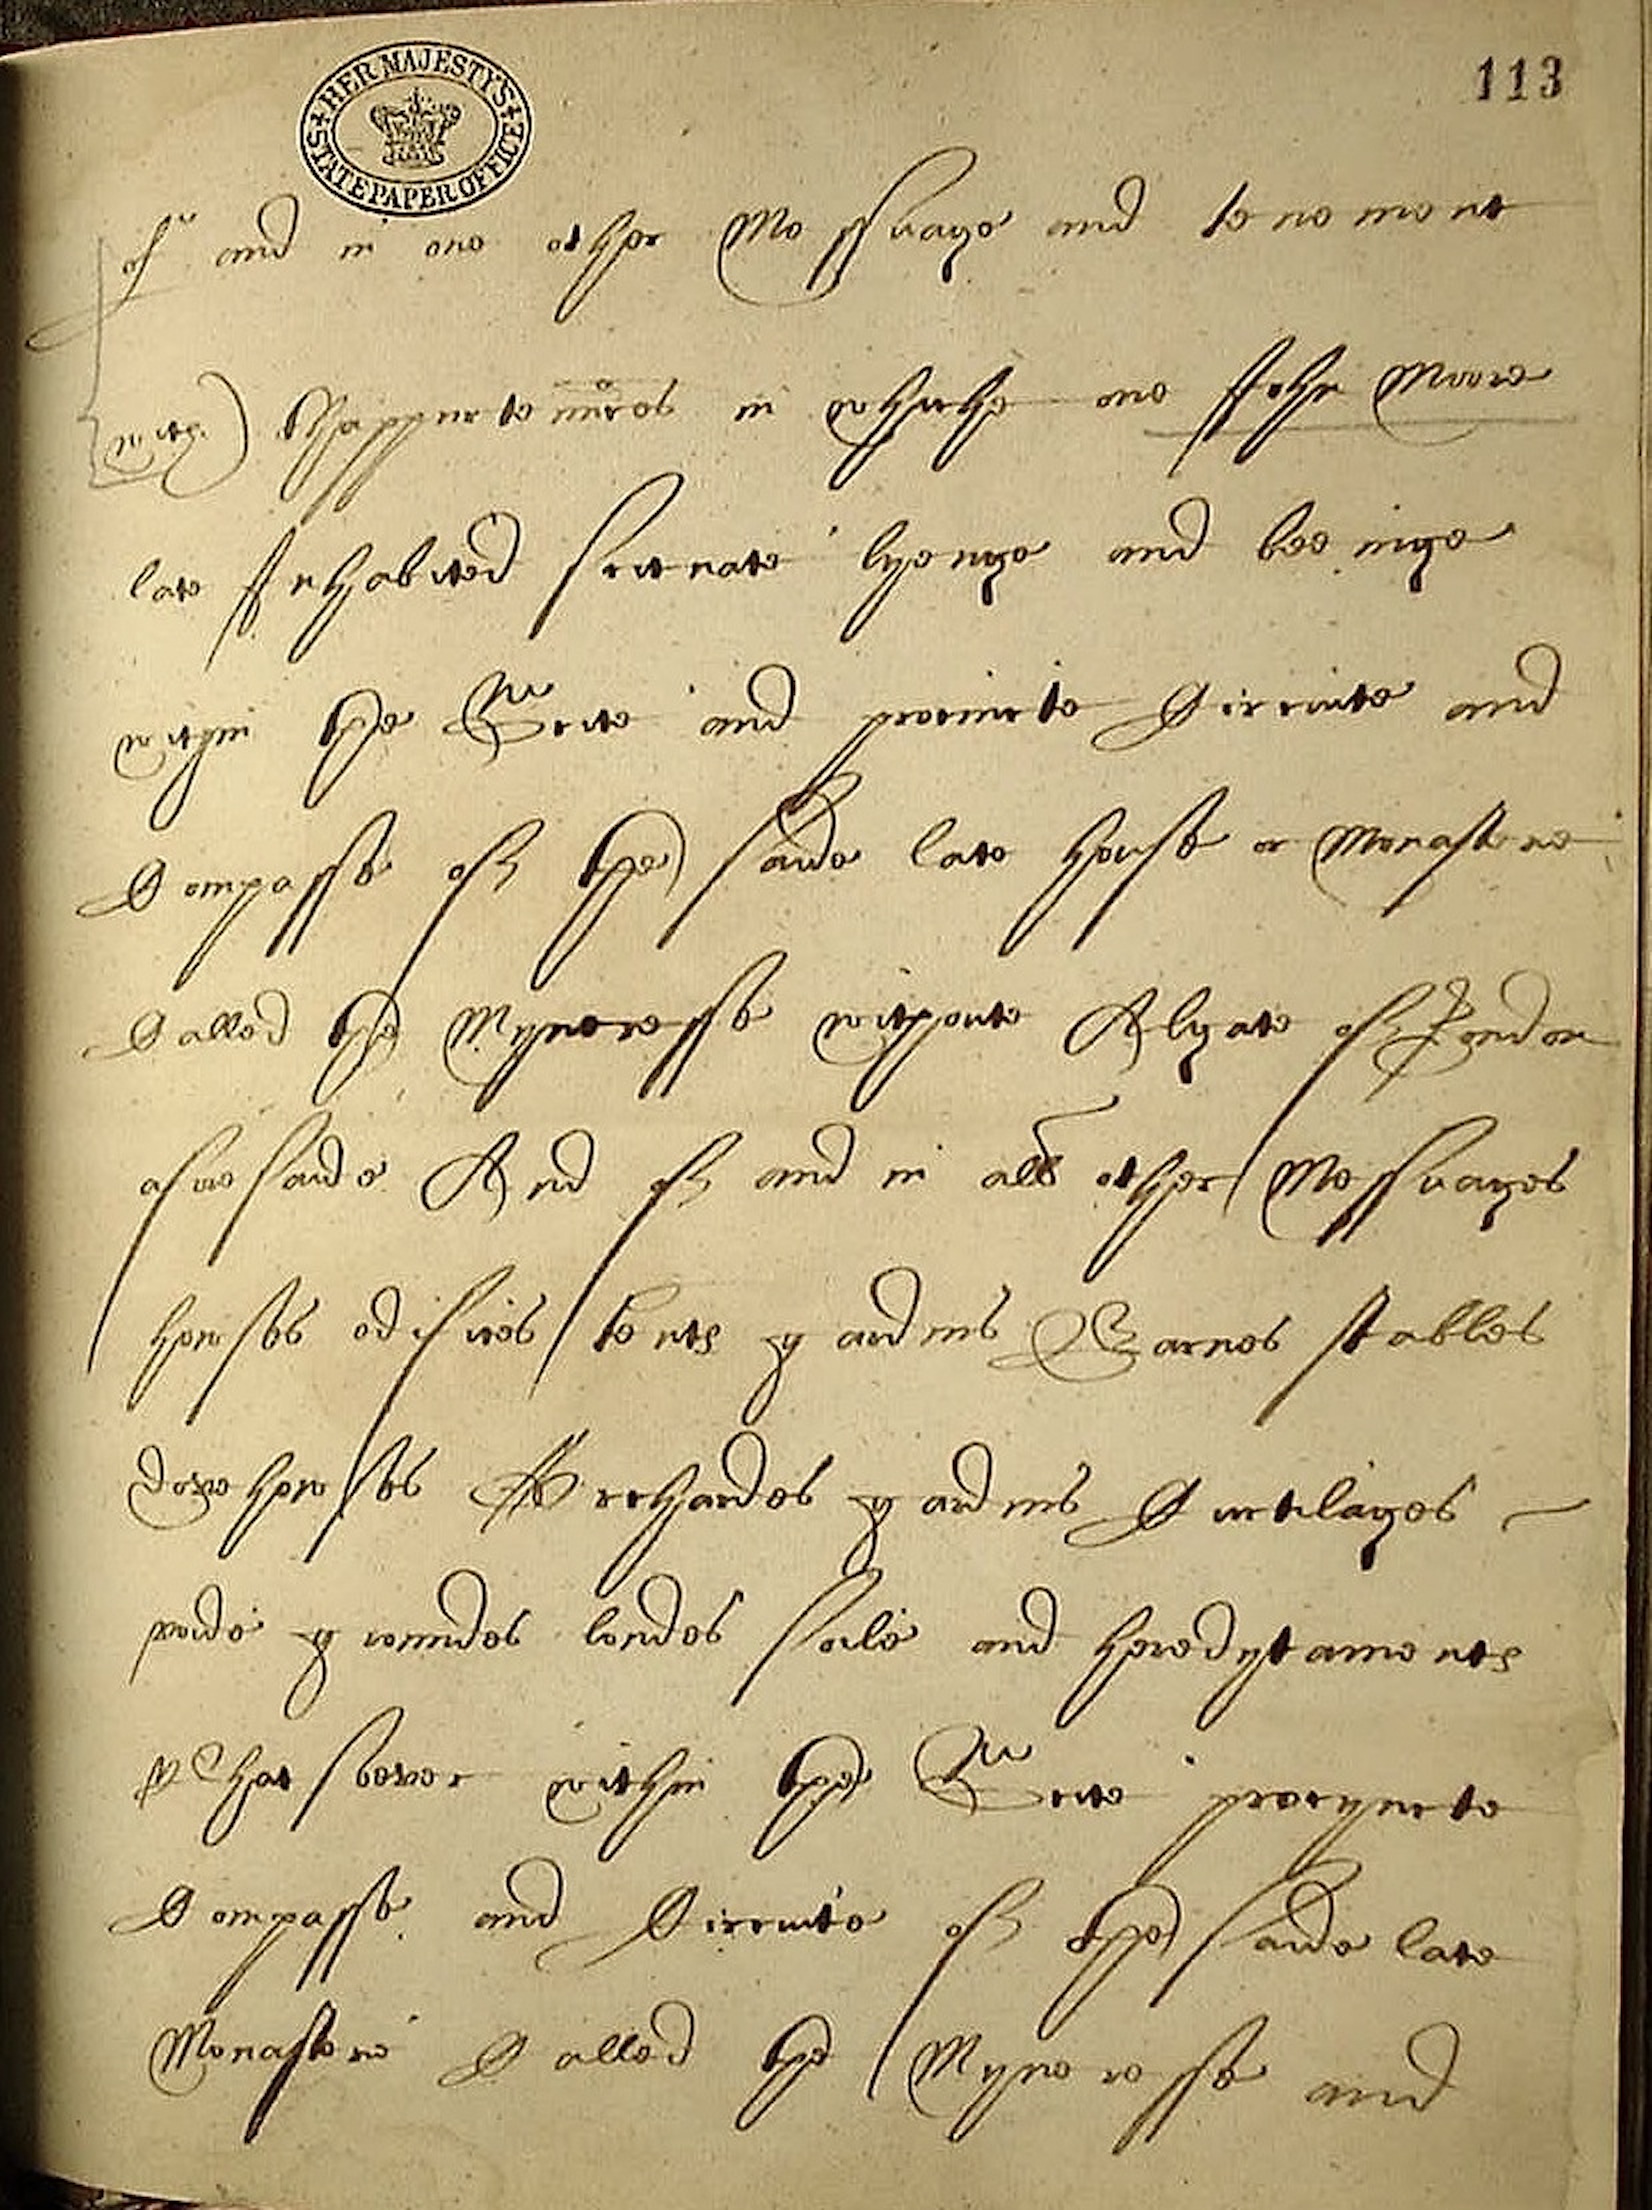 HER MAJESTY'S STATE PAPER OFFICE
113
of and in one other Messuage and tenement
with Thappurtenn̄ces in whiche one John Moore
late Inhabited scituate lyenge and beeinge
within the Scite and precincte Circuite and
Compasse of the saide late house or Monasterie
Called the Myneresse withoute Algate of London
aforesaide And of and in all other Messuages
howses edifices tents gardins Barnes stables
dovehowses Orchardes gardins Curtilages
voide groundes londes soile and heredytaments
Whatsoever within the Scite precyncte
Compasse and Circuite of the saide late
Monasterie Called the Myneresse and